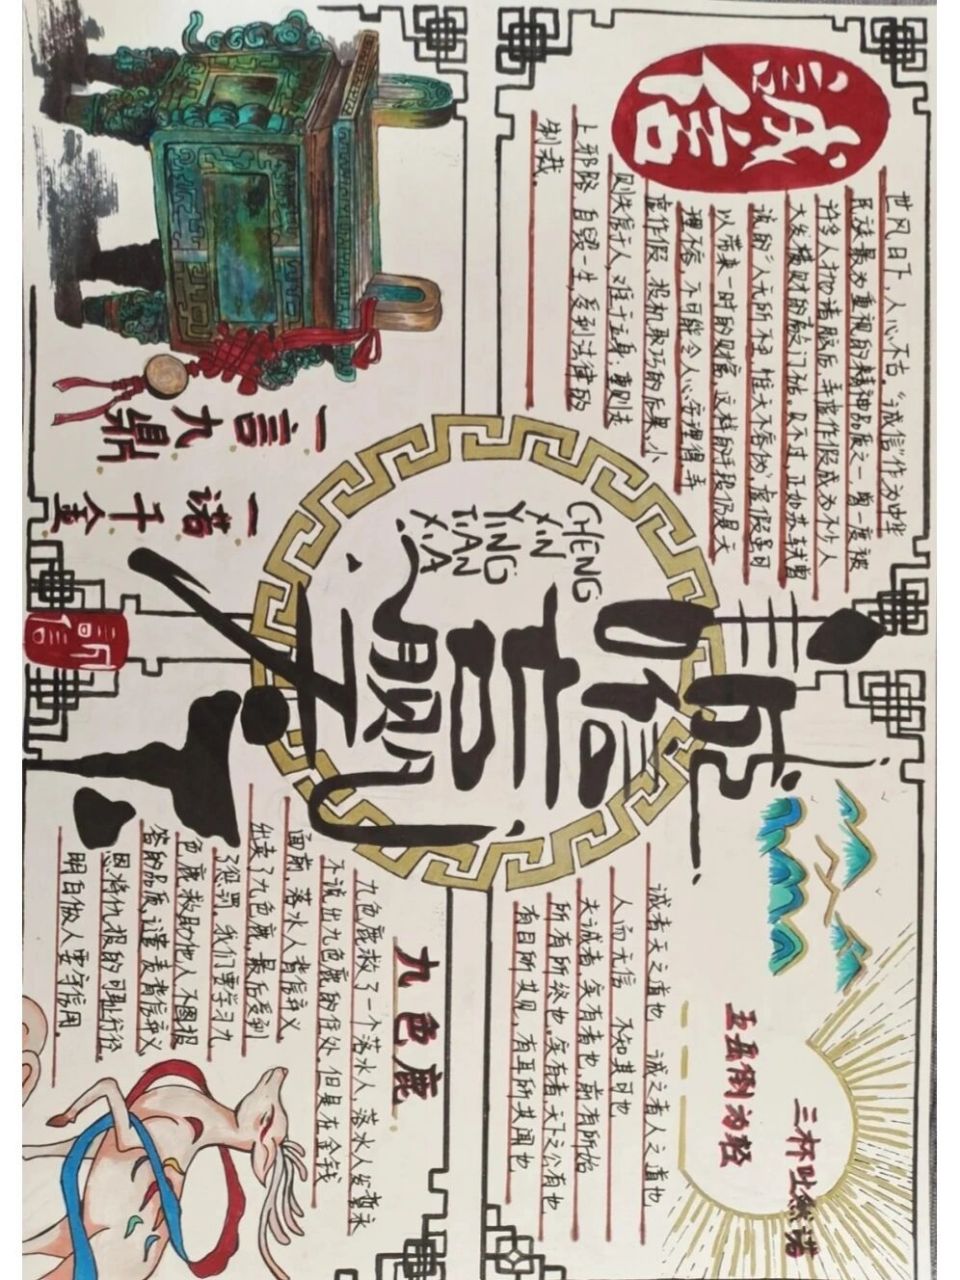 诚信
世风日下，人心不古。“诚信”作为中华
民族最为重视的精神品质之一，曾一度被
许多人抛诸脑后，弄虚作假成为不少人
大发横财的敲门砖。只不过，正如苏轼曾
说的：“人无所不至，惟天不容伪”，虚假虽可
以带来一时的财富，这样的手段仍是天
理不容，不可能令人心安理得。弄
虚作假、投机取巧的后果，小
则失信于人，难于立身；重则走
上邪路，自毁一生，受到法律的
制裁。
一言九鼎
一诺千金
CHENG
XIN
YING
TIAN
XIA
诚信赢天下
三杯吐然诺
五岳倒为轻
诚者天之道也 诚之者人之道也
人而无信 不知其可也
夫诚者，实有者也，前有所始
所有所终也。实有者，天下之公有也
有目所共见，有耳所共闻也
九色鹿
九色鹿救了一个落水人，落水人发誓永
不说出九色鹿的住处，但是在金钱
面前，落水人背信弃义
出卖了九色鹿，最后受到
了惩罚。我们要学习九
色鹿救助他人不图报
答的品质，谴责背信弃义、
恩将仇报的可耻行径。
明白做人要守信用。